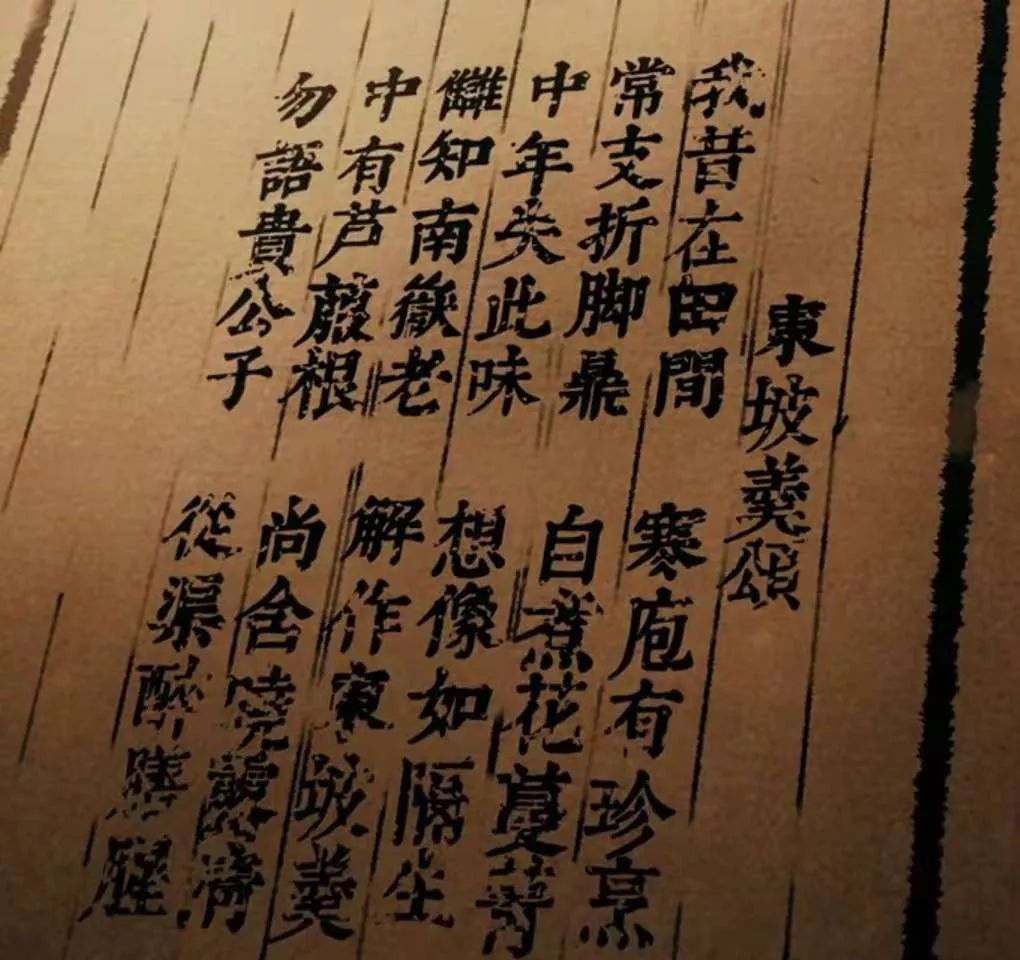 東坡羹頌
我昔在田間 寒庖有珍烹
常支折脚鼎 自煮花蔓菁
中年失此味 想像如隔生
誰知南嶽老 解作東坡羹
中有芦菔根 尚含曉露清
勿語貴公子 從渠醉膻腥